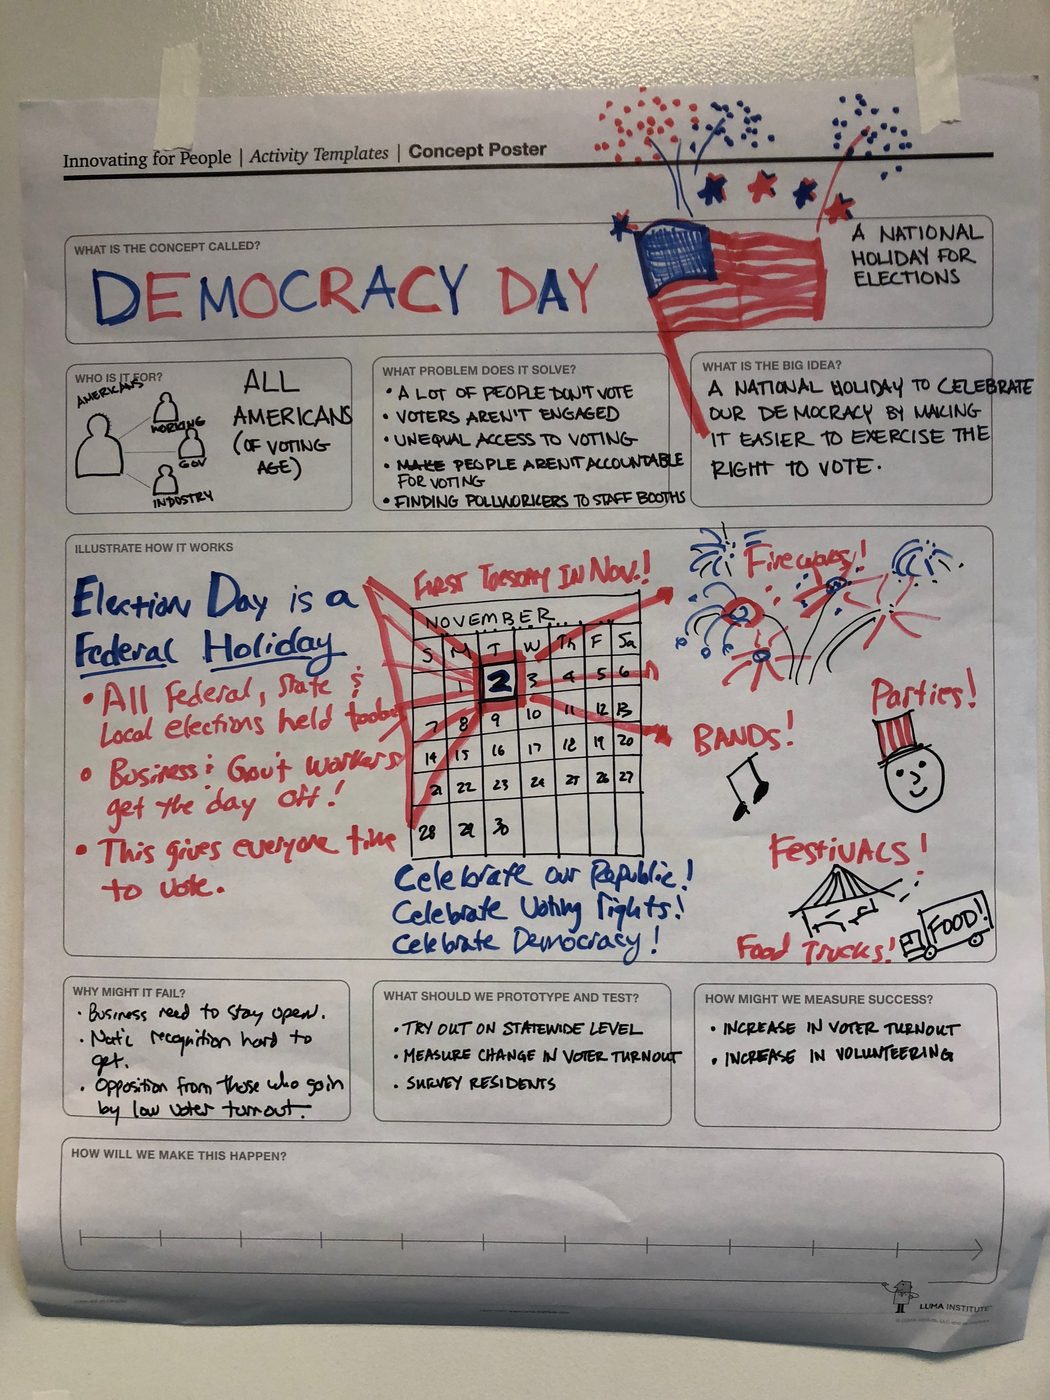 Innovating for People | Activity Templates | Concept Poster
WHAT IS THE CONCEPT CALLED?
DEMOCRACY DAY
A NATIONAL
HOLIDAY FOR
ELECTIONS
WHO IS IT FOR?
AMERICANS
WORKING
GOV
INDUSTRY
ALL
AMERICANS
(OF VOTING
AGE)
WHAT PROBLEM DOES IT SOLVE?
• A LOT OF PEOPLE DON'T VOTE
• VOTERS AREN'T ENGAGED
• UNEQUAL ACCESS TO VOTING
• MAKE PEOPLE AREN'T ACCOUNTABLE
FOR VOTING
• FINDING POLLWORKERS TO STAFF BOOTHS
WHAT IS THE BIG IDEA?
A NATIONAL HOLIDAY TO CELEBRATE
OUR DEMOCRACY BY MAKING
IT EASIER TO EXERCISE THE
RIGHT TO VOTE.
ILLUSTRATE HOW IT WORKS
Election Day is a
Federal Holiday
• All Federal, State &
Local elections held today
• Business & Gov't workers
get the day off!
• This gives everyone time
to vote.
FIRST TUESDAY IN NOV.!
NOVEMBER
S M T W Th F Sa
1 2 3 4 5 6
7 8 9 10 11 12 13
14 15 16 17 18 19 20
21 22 23 24 25 26 27
28 29 30
Celebrate our Republic!
Celebrate Voting rights!
Celebrate Democracy!
Fireworks!
Parties!
BANDS!
FESTIVALS!
FOOD!
Food Trucks!
WHY MIGHT IT FAIL?
• Business need to stay open.
• Nat'l recognition hard to
get.
• Opposition from those who gain
by low voter turnout.
WHAT SHOULD WE PROTOTYPE AND TEST?
• TRY OUT ON STATEWIDE LEVEL
• MEASURE CHANGE IN VOTER TURNOUT
• SURVEY RESIDENTS
HOW MIGHT WE MEASURE SUCCESS?
• INCREASE IN VOTER TURNOUT
• INCREASE IN VOLUNTEERING
HOW WILL WE MAKE THIS HAPPEN?
LUMA INSTITUTE